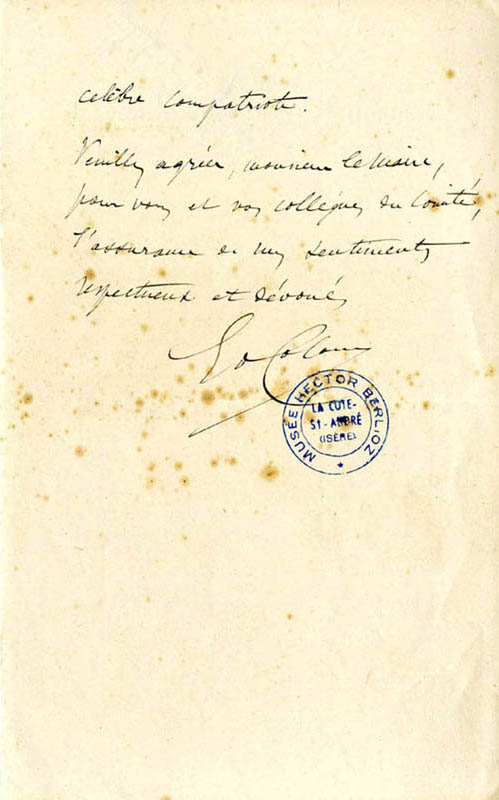 célèbre compatriote.
Veuillez agréer, monsieur le Maire,
pour vous et vos collègues du Comité,
l'assurance de mes sentiments
respectueux et dévoués
Ed Colonne
MUSÉE HECTOR BERLIOZ
LA COTE-
ST-ANDRÉ
(ISÈRE)